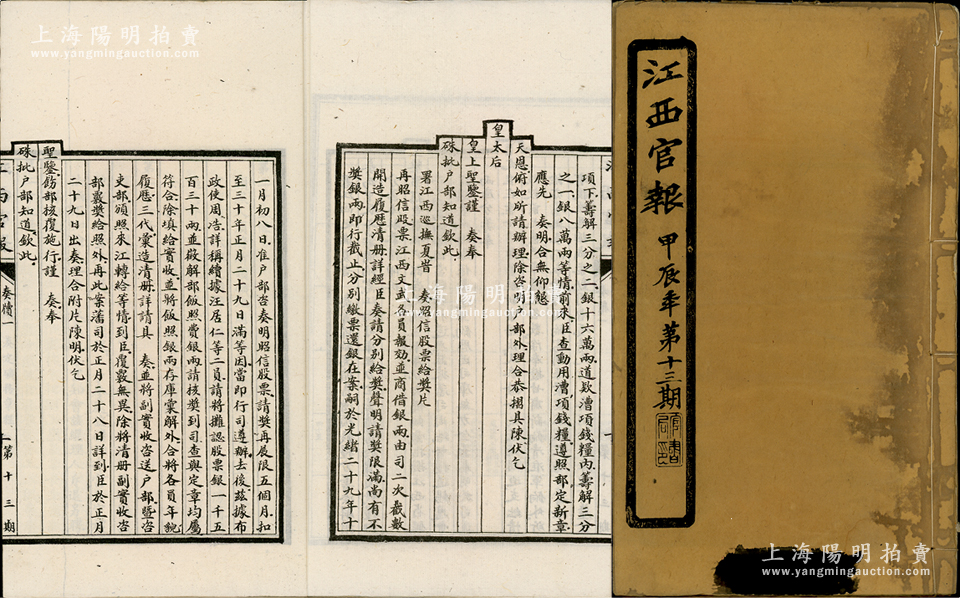 江西官報 甲辰年第十三期
項下籌解三分之二銀十六萬兩道欵漕項錢糧內籌解三分
之一銀八萬兩等情前來臣查動用漕項錢糧遵照部定新章
應先 奏明合無仰懇
天恩俯如所請辦理除咨明戶部外理合恭摺具陳伏乞
皇太后
皇上聖鑒謹 奏奉
硃批戶部知道欽此
署江西巡撫夏皆 奏昭信股票給獎片
再昭信股票江西文武各員報効並商借銀兩由司二次截數
開造履歷清册詳經臣奏請分別給獎聲明請獎限滿尚有不
獎銀兩即行截止分別繳票還銀在案嗣於光緒二十九年十
一月初八日准戶部咨奏明昭信股票請獎再展限五個月扣
至三十年正月二十九日滿等因當即行司遵辦去後茲據布
政使周浩詳稱續據汪居仁等二員請將攤認股票銀一千五
百三十兩並繳解部飯照費銀兩請核獎到司查與定章均屬
符合除填給實收並將飯照銀兩存庫彙解外合將各員年貌
履歷三代彙造清册詳請具 奏並將副實收咨送戶部曁咨
吏部頒照來江轉給等情到臣覆覈無異除將清册副實收咨
部覈獎給照外再此案藩司於正月二十八日詳到臣於正月
二十九日出奏理合附片陳明伏乞
聖鑒飭部核覆施行謹 奏奉
硃批戶部知道欽此
江西官報
奏牘一
第十三期
上海陽明拍賣
www.yangmingauction.com
上海陽明拍賣
www.yangmingauction.com
上海陽明拍賣
www.yangmingauction.com